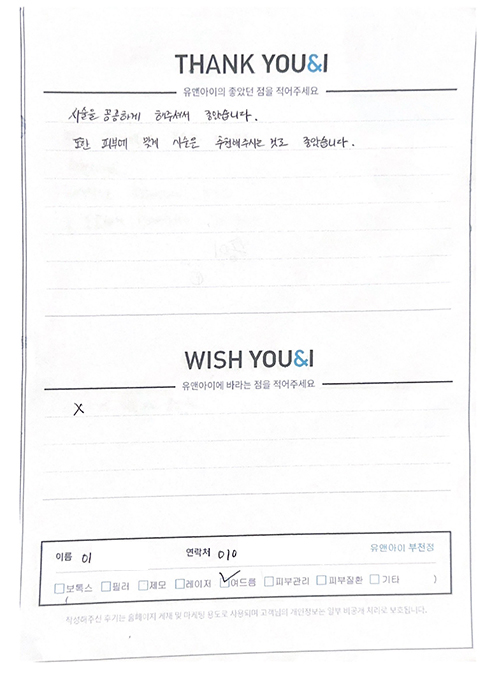 THANK YOU&I
유앤아이의 좋았던 점을 적어주세요
시술을 꼼꼼하게 해주셔서 좋았습니다.
또한 피부에 맞게 시술은 추천해주시는 것도 좋았습니다.
WISH YOU&I
유앤아이에 바라는 점을 적어주세요
X
이름 이 연락처 010 유앤아이 부천점
보톡스 필러 제모 레이저 여드름 피부관리 피부질환 기타 )
(
작성해주신 후기는 홈페이지 게재 및 마케팅 용도로 사용되며 고객님의 개인정보는 일부 비공개 처리로 보호됩니다.